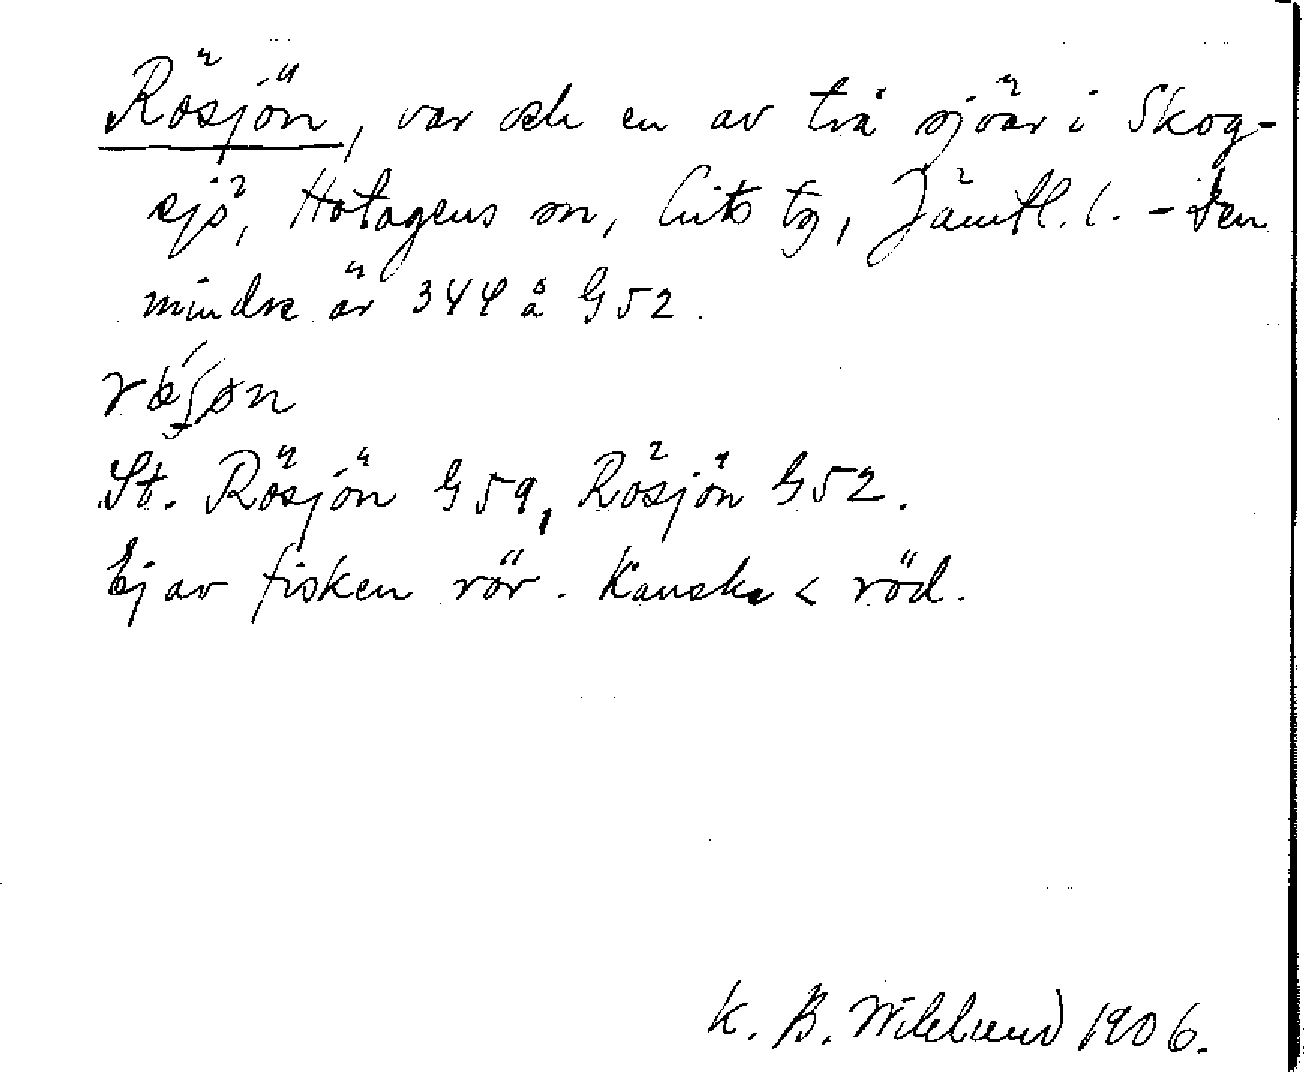 Rösjön, var och en av två sjöar i Skog-
sjö, Hotagens sn, Lits tg, Jämtl. l. - Den
mindre är 344 å G52.
St. Rösjön G59, Rösjön G52.
Ej av fisken rör. Kanske < röd.
K. B. Wiklund 1906.